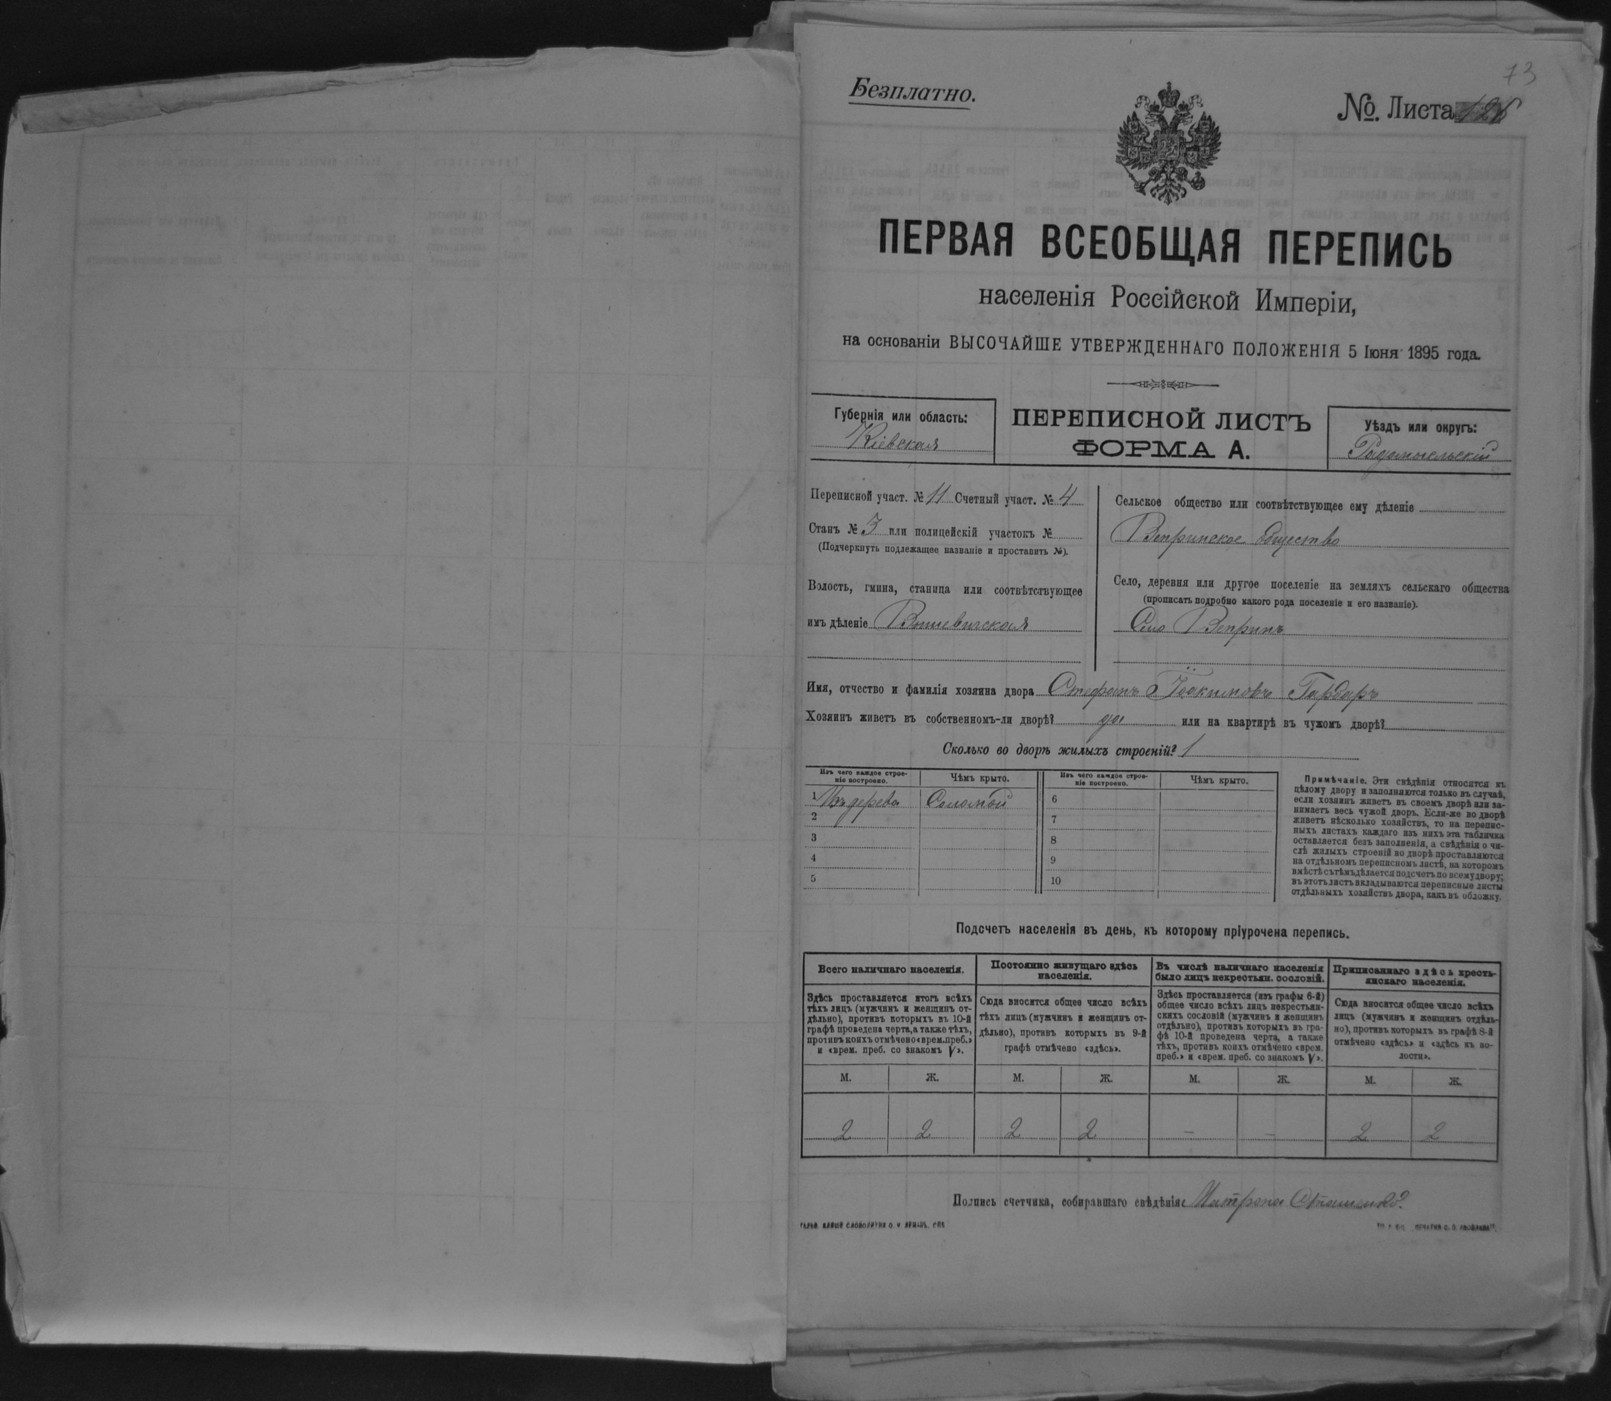 73
Безплатно.
№. Листа
ПЕРВАЯ ВСЕОБЩАЯ ПЕРЕПИСЬ
населенія Россійской Имперіи,
на основаніи ВЫСОЧАЙШЕ УТВЕРЖДЕННАГО ПОЛОЖЕНІЯ 5 Іюня 1895 года.
Губернія или область:
Кіевская
ПЕРЕПИСНОЙ ЛИСТЪ
ФОРМА А.
Уѣздъ или округъ:
Радомысльскій
Переписной участ. № 11 Счетный участ. № 4
Станъ № 3 или полицейскій участокъ №
(Подчеркнуть подлежащее названіе и проставить №).
Волость, гмина, станица или соотвѣтствующее
имъ дѣленіе Вышевичская
Сельское общество или соотвѣтствующее ему дѣленіе
Вепринское общество
Село, деревня или другое поселеніе на земляхъ сельскаго общества
(прописать подробно какого рода поселеніе и его названіе).
Село Вепринъ
Имя, отчество и фамилія хозяина двора Стефанъ Іоакимовъ Гарбаръ
Хозяинъ живетъ въ собственномъ-ли дворѣ? да или на квартирѣ въ чужомъ дворѣ?
Сколько во дворѣ жилыхъ строеній? 1
Изъ чего каждое строеніе построено.
Чѣмъ крыто.
Изъ чего каждое строеніе построено.
Чѣмъ крыто.
1 Изъ дерева Соломой 6
2 7
3 8
4 9
5 10
Примѣчаніе. Эти свѣдѣнія относятся къ
цѣлому двору и заполняются только въ случаѣ,
если хозяинъ живетъ въ своемъ дворѣ или за-
нимаетъ весь чужой дворъ. Если-же во дворѣ
живетъ нѣсколько хозяйствъ, то на перепис-
ныхъ листахъ каждаго изъ нихъ эта табличка
оставляется безъ заполненія, а свѣдѣнія о чи-
слѣ жилыхъ строеній во дворѣ проставляются
на отдѣльномъ переписномъ листѣ, на которомъ
вмѣстѣ съ тѣмъ дѣлается подсчетъ по всему двору;
въ этотъ листъ вкладываются переписные листы
отдѣльныхъ хозяйствъ двора, какъ въ обложку.
Подсчетъ населенія въ день, къ которому пріурочена перепись.
Всего наличнаго населенія.
Здѣсь проставляется итогъ всѣхъ
тѣхъ лицъ (мужчинъ и женщинъ от-
дѣльно), противъ которыхъ въ 10-й
графѣ проведена черта, а также тѣхъ,
противъ коихъ отмѣчено «врем. преб.»
и «врем. преб. со знакомъ V».
Постоянно живущаго здѣсь
населенія.
Сюда вносится общее число всѣхъ
тѣхъ лицъ (мужчинъ и женщинъ от-
дѣльно), противъ которыхъ въ 9-й
графѣ отмѣчено «здѣсь».
Въ числѣ наличнаго населенія
было лицъ некрестьян. сословій.
Здѣсь проставляется (изъ графы 6-й)
общее число всѣхъ лицъ некрестьян-
скихъ сословій (мужчинъ и женщинъ
отдѣльно), противъ которыхъ въ гра-
фѣ 10-й проведена черта, а также
тѣхъ, противъ коихъ отмѣчено «врем.
преб.» и «врем. преб. со знакомъ V».
Приписаннаго здѣсь кресть-
янскаго населенія.
Сюда вносится общее число всѣхъ
лицъ (мужчинъ и женщинъ отдѣль-
но), противъ которыхъ въ графѣ 8-й
отмѣчено «здѣсь» и «здѣсь въ во-
лости».
М. Ж. М. Ж. М. Ж. М. Ж.
2 2 2 2 - - 2 2
Подпись счетчика, собиравшаго свѣдѣнія: